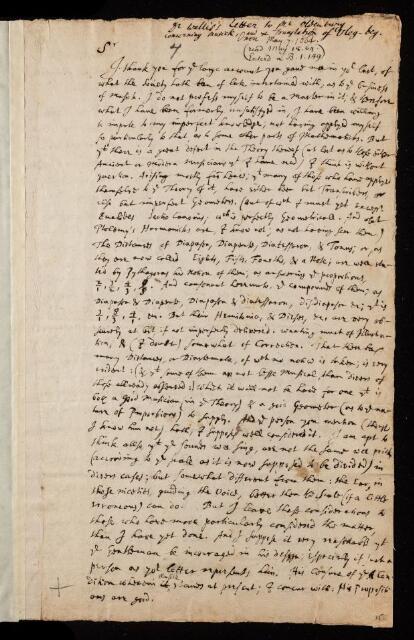 Dr Wallis's Letter to Mr Oldenburg
concerning Musick, and a Translation of Uleg-beg.
May 7. 1664.
read May 18. 64.
Enterd in B. 1. 149.
Sr
I thank you for ye large account you gave me in yor last, of
what the Society hath been of late intertained with, as to ye busyness
of Musick. I do not profess myself to be a Master in it; &
what I have been formerly unsatisfyed in, I have been willing
to impute to my imperfect knowledge, not having applyed myself
so particularly to that as to some other parts of Mathematicks. But
yt there is a great defect in the Theory thereof (at lest as to those
Ancient or modern Musicians yt I have read) I think is without
question. Arising mostly from hence; yt many of those who have applyed
themselves to ye Theory of it, have either been but Transcribers, or
else but imperfect Geometers. (out of wch I must yet except
Euclides Sectio Canonis, wch is perfectly Geometricall. And what
Ptolemy's Harmonicks are I know not, as not having seen them.)
The Distances of Diapason, Diapente, Diatessaron, & Tonus; or, as
they are now called Eights, Fifts, Fourths, & a Note; are well
ted by Pythagoras his notion of them; as answering ye proportions
And consonant hereunto, ye compounds of them; as
Diapason & Diapente, Diapason & diatessaron, disdiapason &c; yt is
&c. But their Hemitonio, & Diesis, &c. are very ob-
scurely at lest if not imperfectly delivered: wanting much of
tion, & (I doubt) somewhat of Correction. That there bee
many Distances, or Diastemata, of wch no notice is taken; is very
evident: (& yt some of them are not lesse Musical, than divers of
those allready assigned:) which it will not be hard for one yt is
both a good Musician (in ye Theory) & a good Geometer (as to ye na-
ture of Proportions) to supply. And ye person you mention (though
I know him not) hath, I suppose well considered it. I am apt to
think allso yt ye sounds wee sing, are not the same wee prick
(according to ye scale as it is now supposed to be divided) in
divers cases; but somewhat different from them: the ear, in
those niceties, guiding the Voice, better than ye Scale (if a little
erroneous) can do. But I leave those considerations to
those who have more particularly considered the matter,
than I have yet done. And, I suppose it very reasonable yt
ye Gentleman be incouraged in his designe, especially if such a
person as yor letter represents him. His Censure of ye
dition wherein Musick stands at present; I concur with. His Propositi-
ons are good.